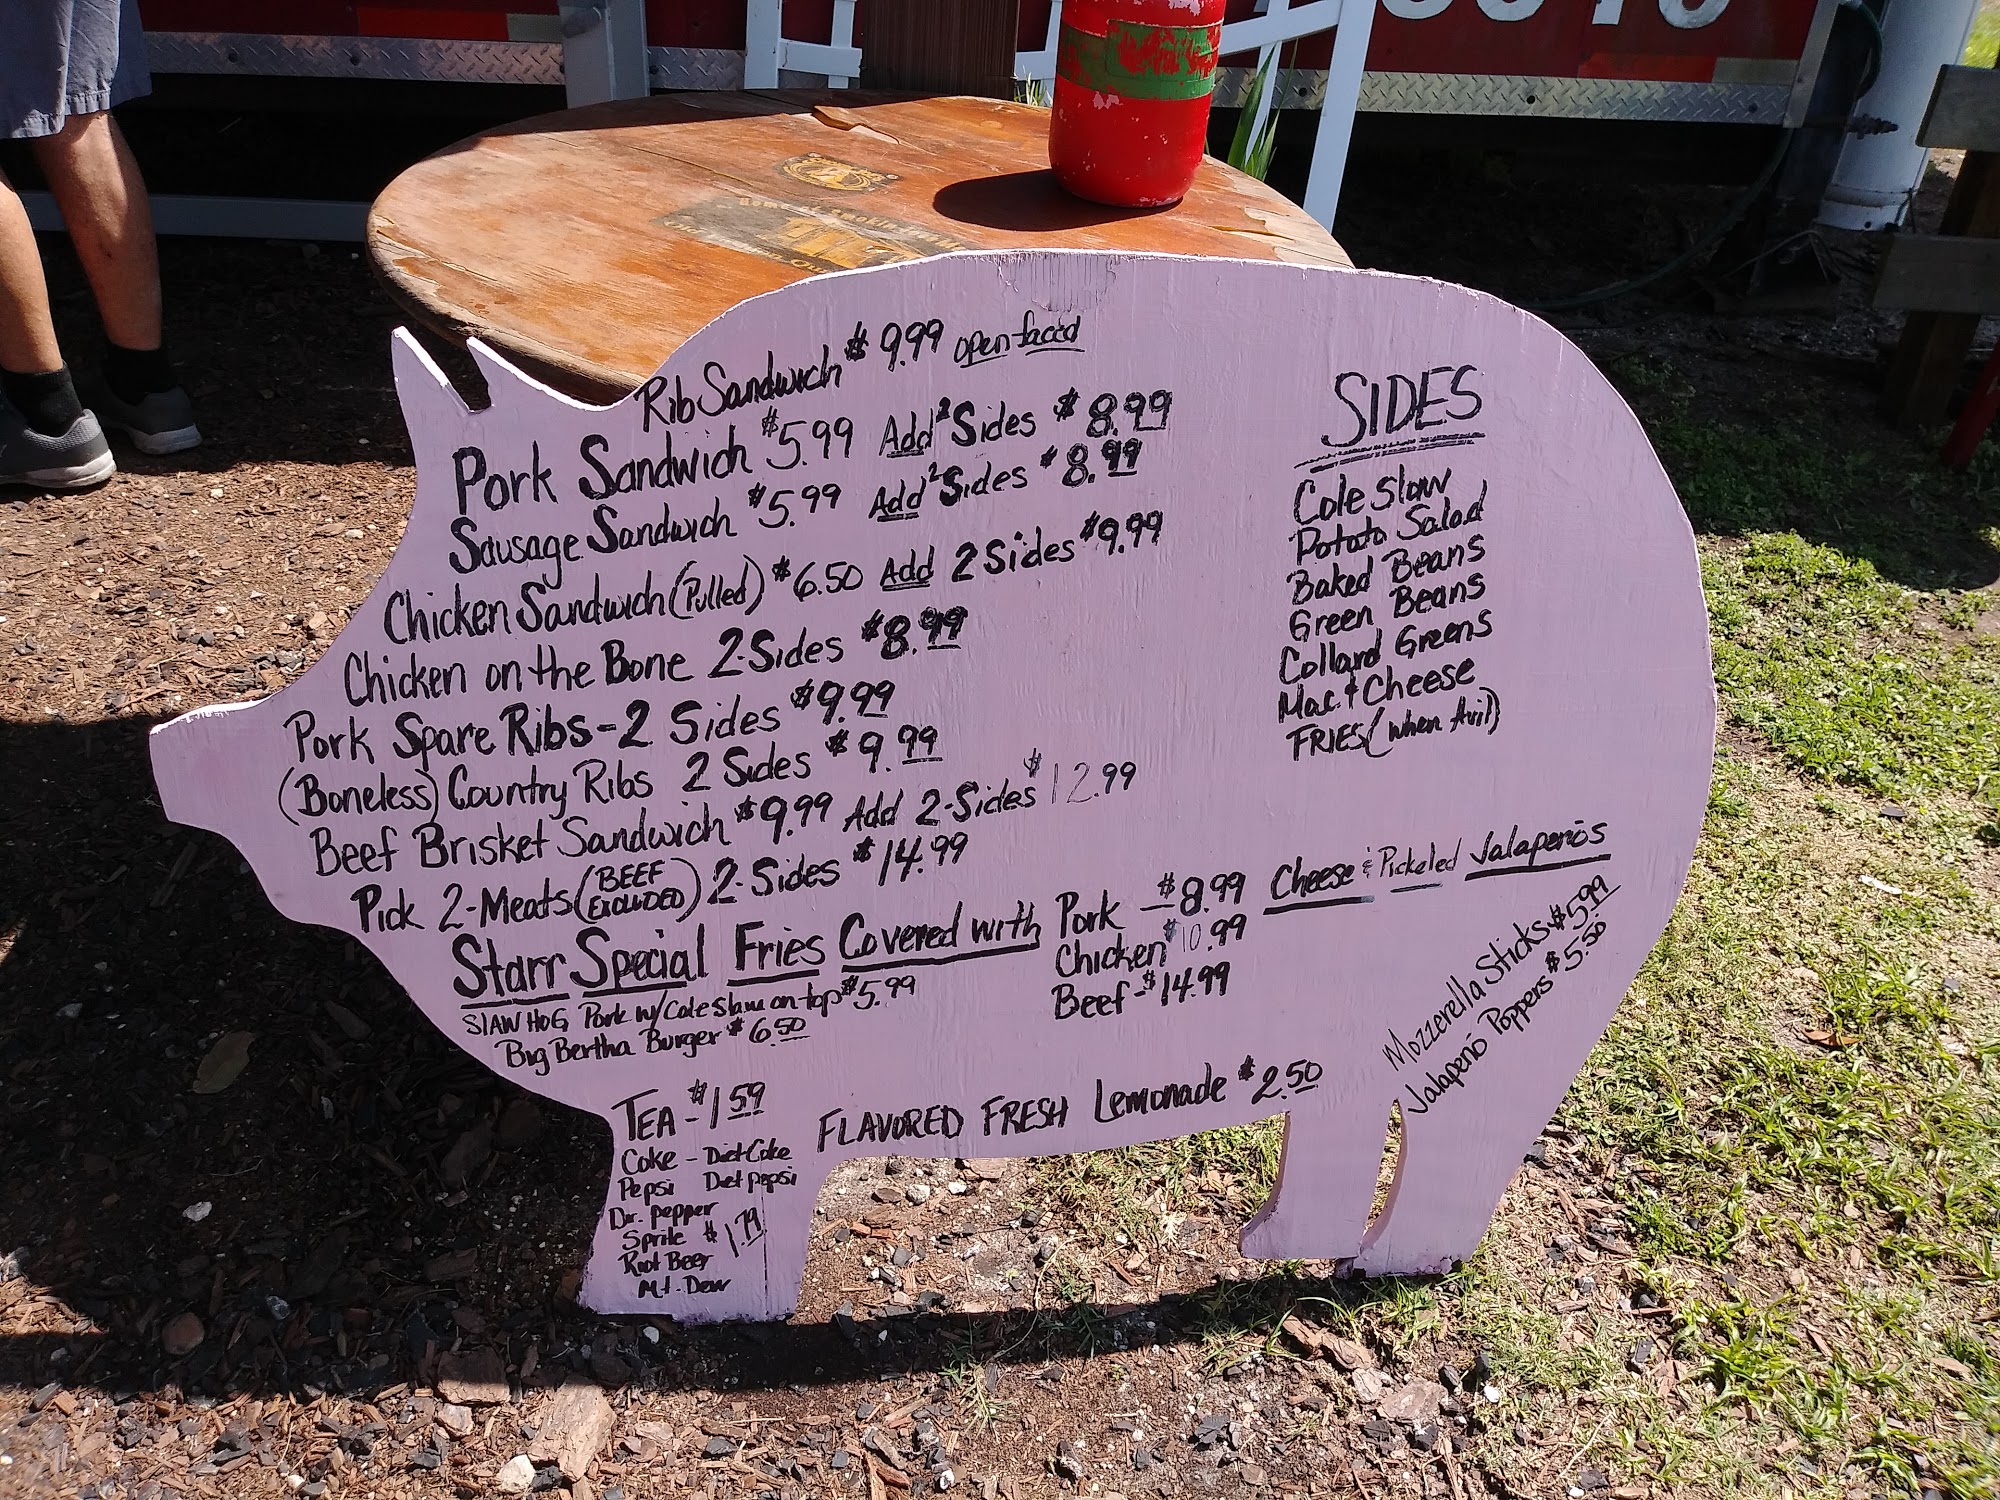 Rib Sandwich $9.99 open-faced
Pork Sandwich $5.99 Add 2 Sides $8.99
Sausage Sandwich $5.99 Add 2 Sides $8.99
Chicken Sandwich (Pulled) $6.50 Add 2 Sides $9.99
Chicken on the Bone 2-Sides $8.99
Pork Spare Ribs-2 Sides $9.99
(Boneless) Country Ribs 2 Sides $9.99
Beef Brisket Sandwich $9.99 Add 2-Sides $12.99
Pick 2-Meats (BEEF EXCLUDED) 2-Sides $14.99
Starr Special Fries Covered with
Pork $8.99
Chicken $10.99
Beef-$14.99
Cheese & Pickeled Jalapeños
SlAW HOG Pork w/Coleslaw on top $5.99
Big Bertha Burger $6.50
SIDES
Cole Slaw
Potato Salad
Baked Beans
Green Beans
Collard Greens
Mac & Cheese
FRIES (when Avil)
Mozzerella Sticks $5.99
Jalapeño Poppers $5.50
TEA-$1.59
Coke - Diet Coke
Pepsi Diet pepsi
Dr. pepper
Sprite $1.79
Root Beer
Mt. Dew
FLAVORED FRESH Lemonade $2.50